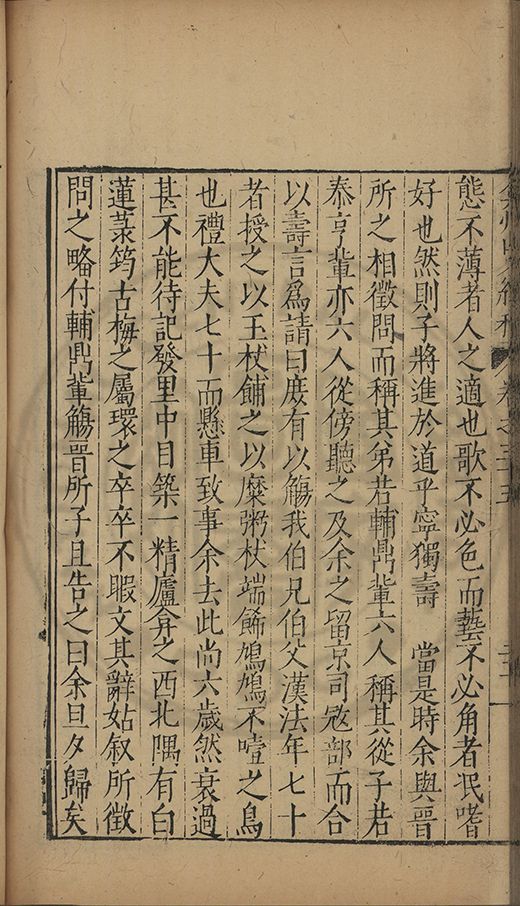 弇州山人續稿 卷之三十五
態不薄者人之適也歌不必色而藝不必角者汦嗜
好也然則子將進於道乎寧獨壽 當是時余與晋
所之相徵問而稱其弟若輔鼎輩六人稱其從子若
泰亨輩亦六人從傍聽之及余之留京司寇部而合
以壽言爲請曰庶有以觴我伯兄伯父漢法年七十
者授之以王杖餔之以糜粥杖端餙鳩鳩不噎之鳥
也禮大夫七十而懸車致事余去此尚六歲然衰過
甚不能待記發里中目築一精廬弇之西北隅有白
蓮菉筠古梅之屬環之卒卒不暇文其辭姑叙所徵
問之畧付輔鼎輩觴晋所子且告之曰余旦夕歸矣